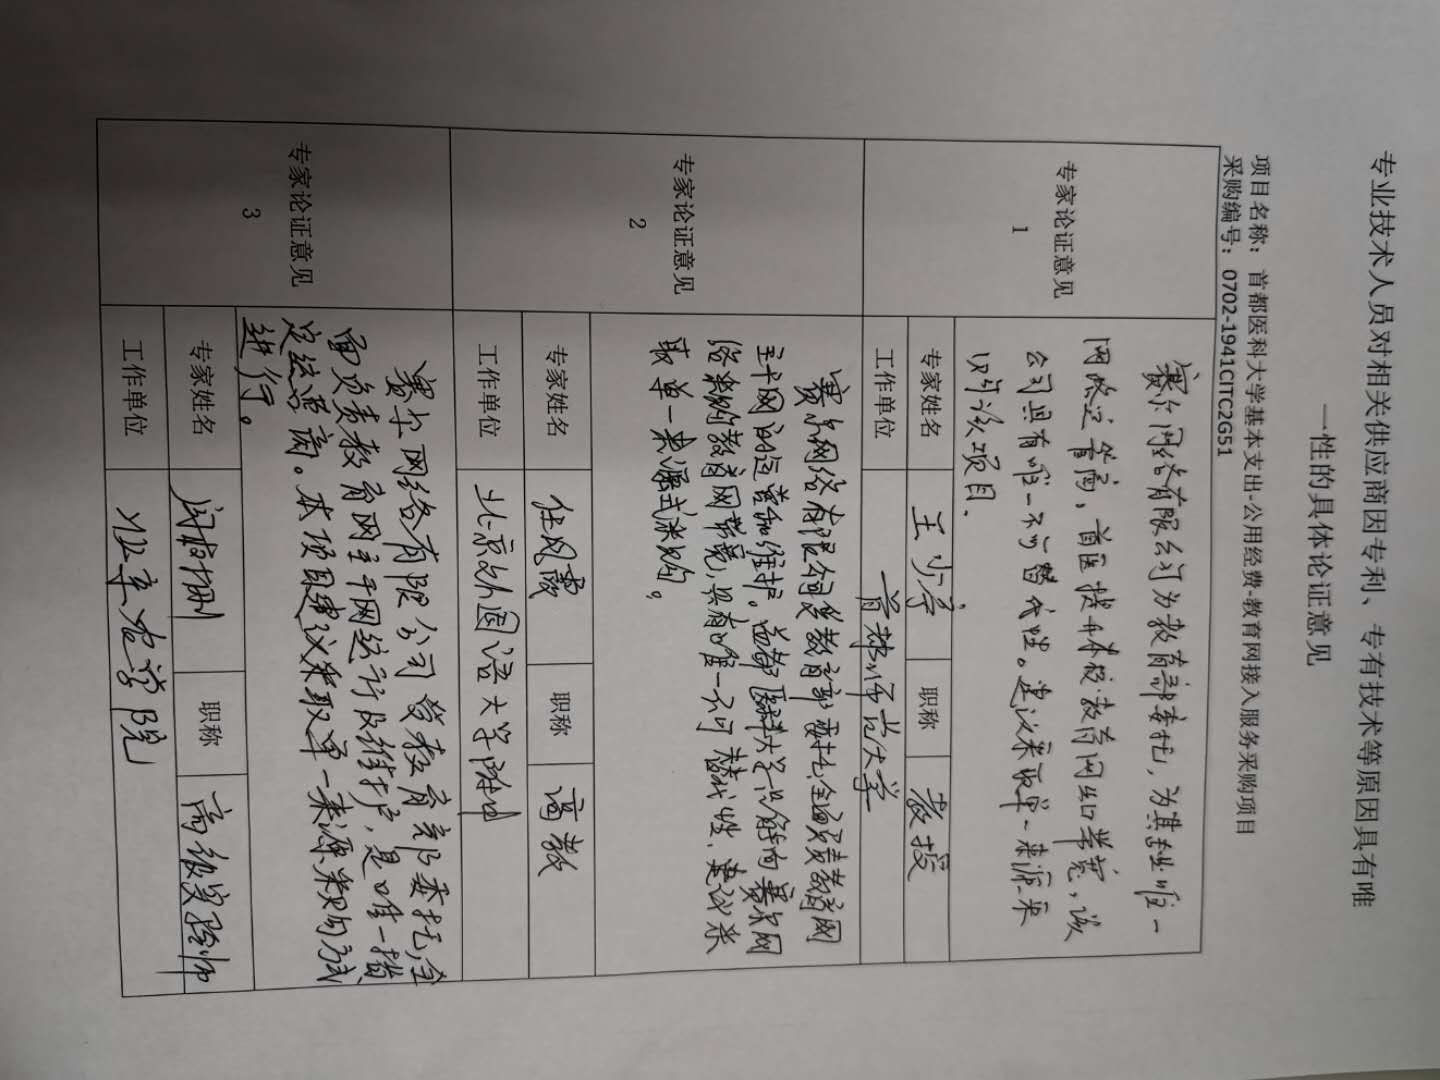 专业技术人员对相关供应商因专利、专有技术等原因具有唯
一性的具体论证意见
项目名称：首都医科大学基本支出-公用经费-教育网接入服务采购项目
采购编号：0702-1941CITC2G51
专家论证意见
1
赛尔网络有限公司为教育部委托，为其专业唯一
网络运营商，首医提升本校教育网出口带宽，该
公司具有唯一不可替代性。建议采取单一来源采
购该项目.
专家姓名
王少宗
职称
教授
工作单位
首都师范大学
专家论证意见
2
赛尔网络有限公司受教育部委托全面负责教育网
主干网的运营和维护。首都医科大学只能向赛尔网
络采购教育网带宽，具有唯一不可替代性，建议采
取单一来源式采购。
专家姓名
任凤霞
职称
高教
工作单位
北京外国语大学附中
专家论证意见
3
赛尔网络有限公司受教育部委托，全
面负责教育网主干网运行及维护，是唯一指
定运营商。本项目建议采取单一来源采购方式
进行。
专家姓名
职称
高级实验师
工作单位
北京农学院